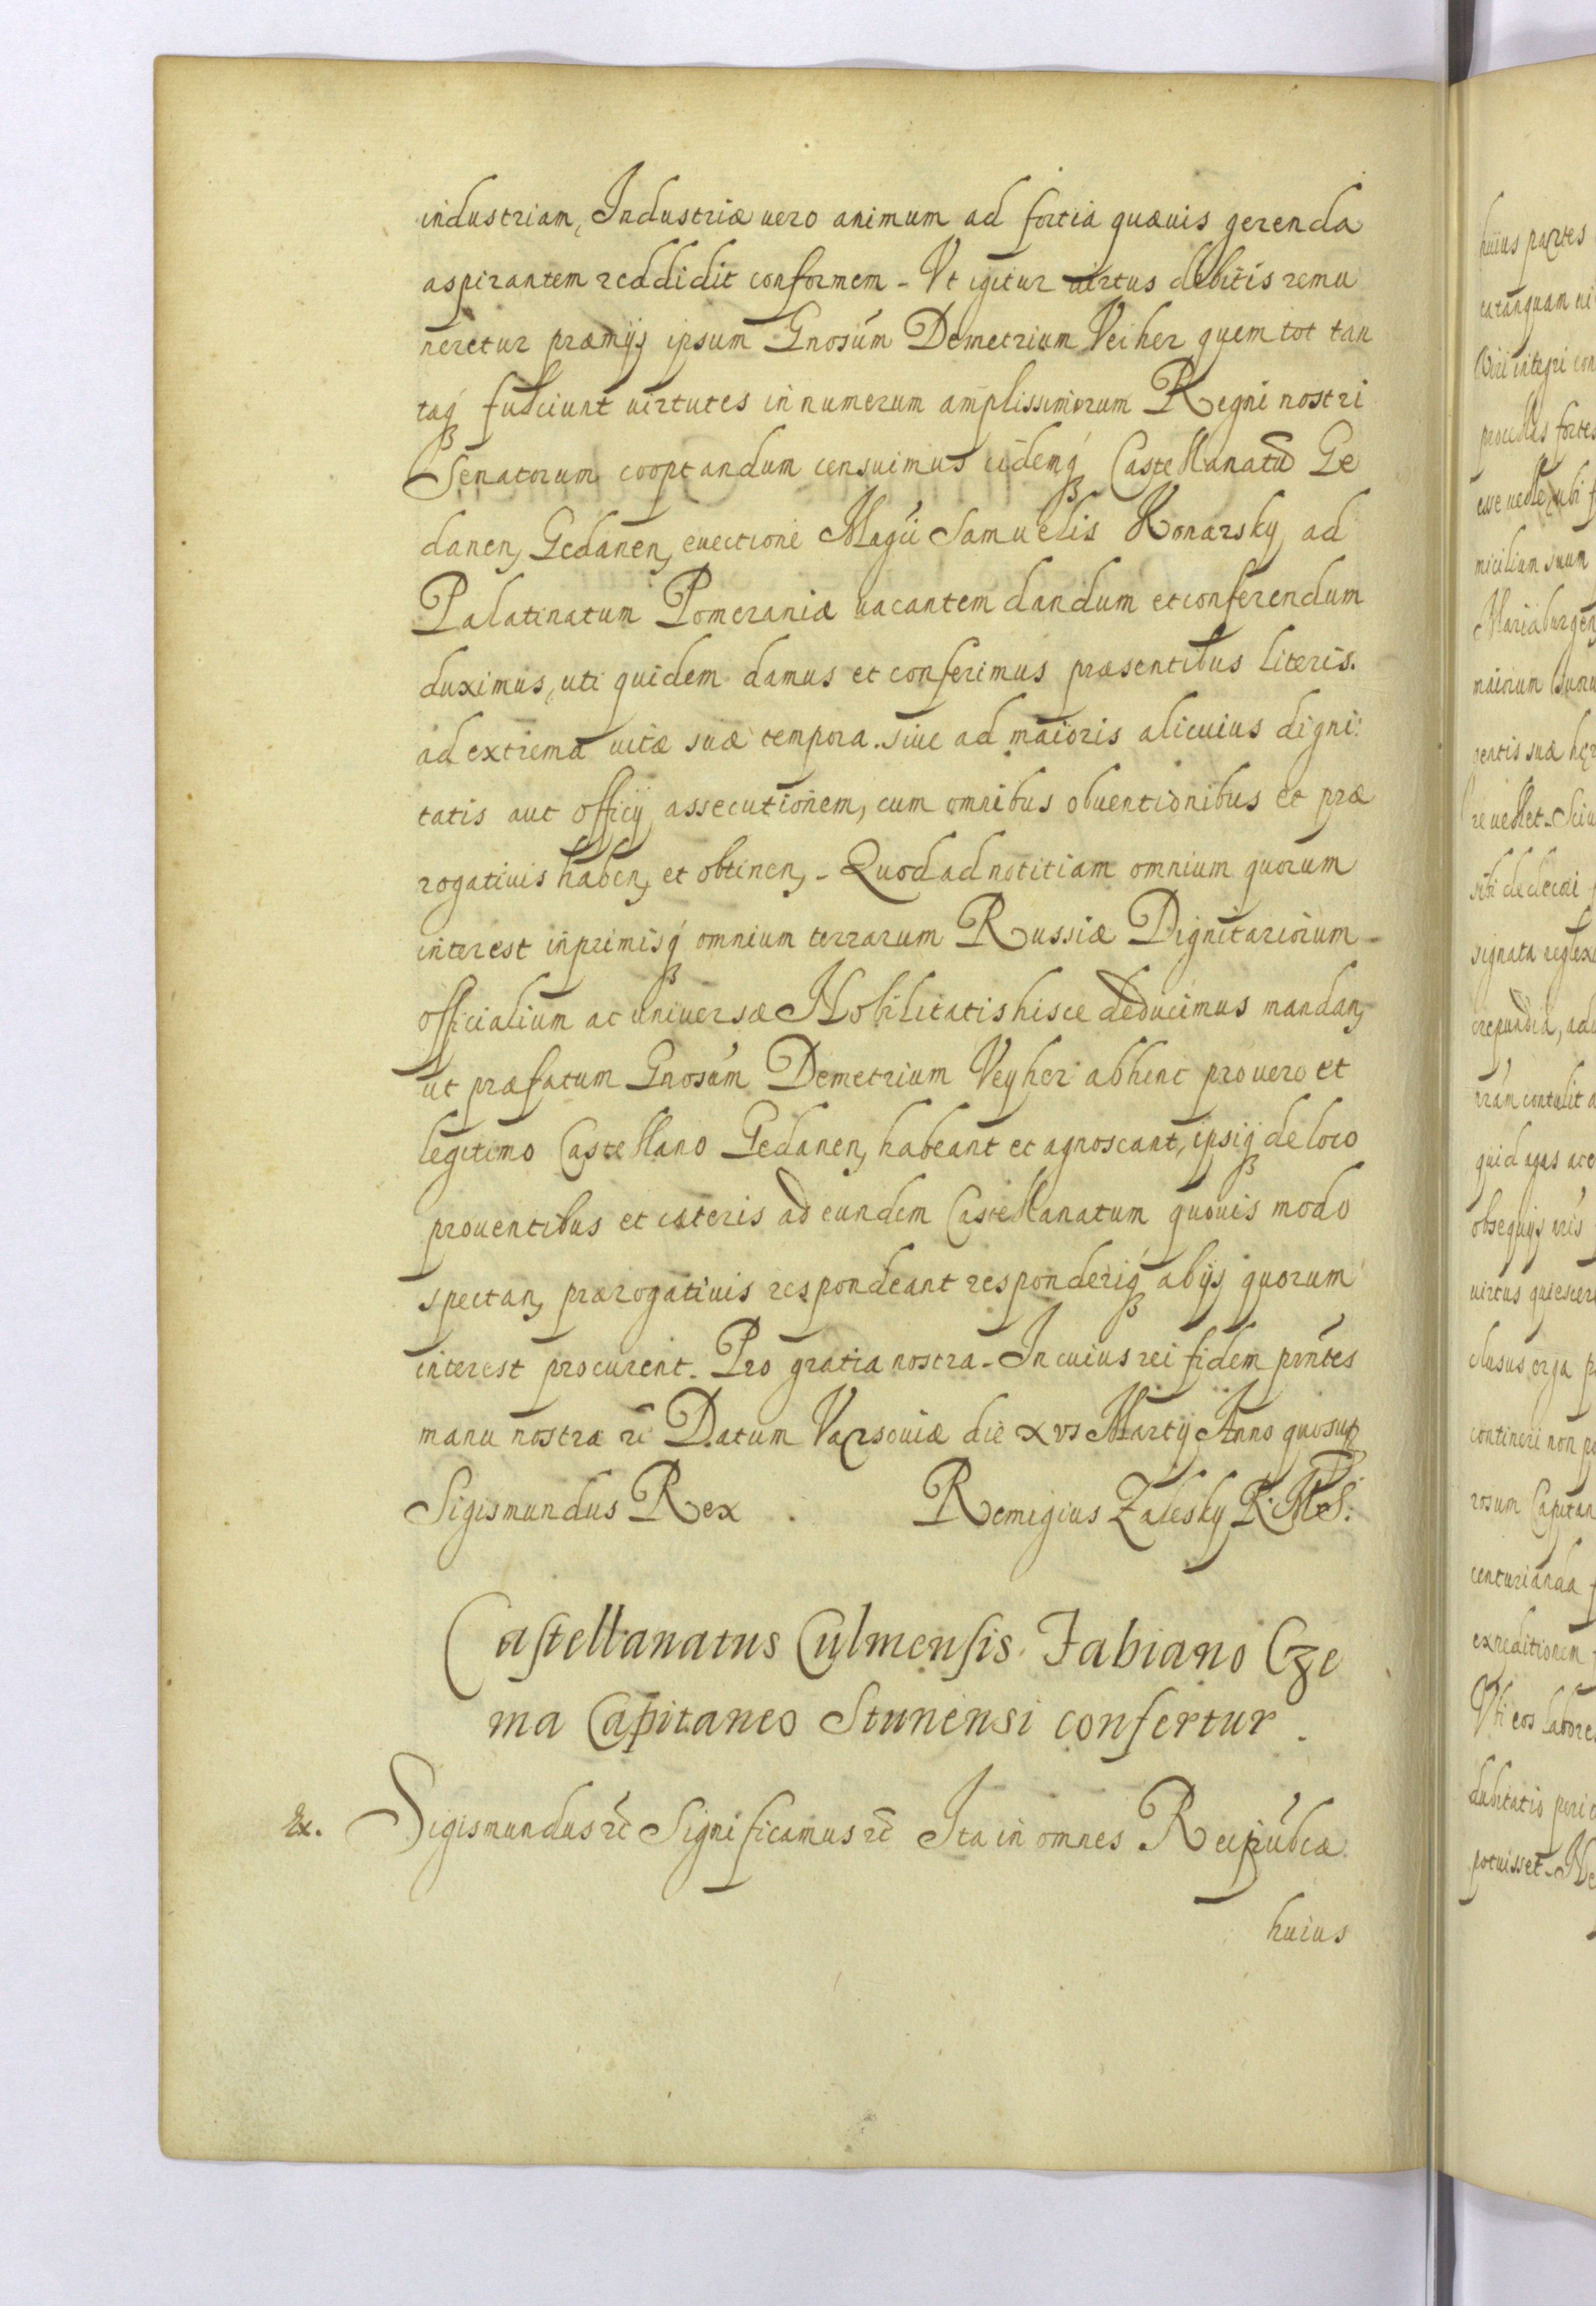 industriam, Industriæ uero animum ad fortia quæuis gerenda
aspirantem reddidit conformem - Vt igitur uirtus debitis remu
neretur præmijs ipsum Gnosum Demetrium Veiher quem tot tan
taq fulciunt uirtutes in numerum amplissimorum Regni nostri
Senatorum cooptandum censuimus eidemq Castellanatū Ge
danen, Gedanen, euectione Magci Samuelis Konarsky ad
Palatinatum Pomeraniæ uacantem dandum et conferendum
duximus, uti quidem damus et conferimus præsentibus literis.
ad extrema uitæ suæ tempora. siue ad maioris alicuius digni:
tatis aut officij assecutionem, cum omnibus obuentionibus et præ
rogatiuis haben, et obtinen, - Quod ad notitiam omnium quorum
interest inprimisq omnium terrarum Russiæ Dignitariorum -
officialium ac uniuersæ Nobilitatis hisce deducimus mandan,
ut præfatum Gnosum Demetrium Veyher abhinc pro uero et
legitimo Castellano Gedanen, habeant et agnoscant, ipsiq de loco
prouentibus et cæteris ad eundem Castellanatum quouis modo
spectan, prærogatiuis respondeant responderiq abijs quorum
interest procurent. Pro gratia nostra - In cuius rei fidem prntes
manu nostra rc Datum Varsouiæ die xvi Martij Anno quo sup
Sigismundus Rex . Remigius Zalesky R: M: S:
Castellanatus Culmensis. Fabiano Cze
ma Capitaneo Stunensi confertur.
Ex. Sigismundus rc Significamus rc Ita in omnes Reipubcæ
huius
huius partes
catanquam ui
Viri integri con
procellis fortes
esse uelle, ubi f
micilium suum
Mariaburgen
maiorum suoru
gentis suæ
re uellet. Sciu
sibi dedecori
signata
crepundia, adu
contulit a
quid agas
obsequijs
uirtus quiescere
clusus erga p
contineri non po
rosum Capitan
centurianda f
expeditionem
Vti eos labores
dubitatio peric
potuisset - Ne